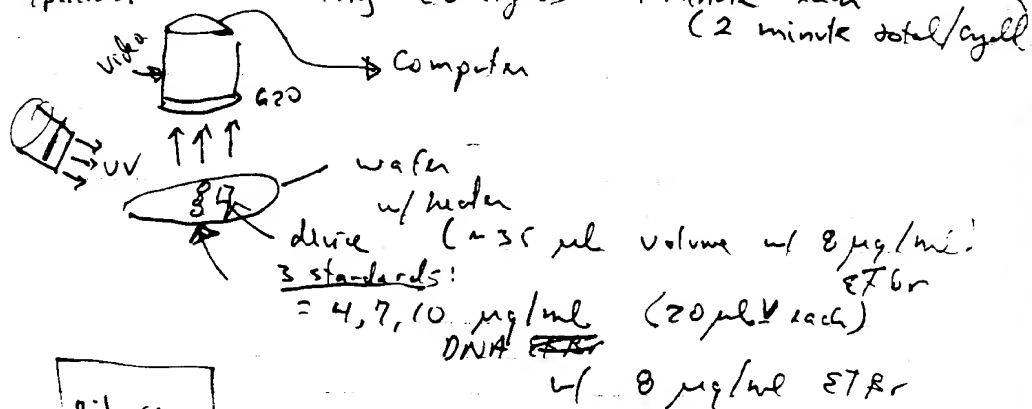 minute each
(2 minute total/cycle)
video
Computer
620
UV
wafer
w/ heater
device (~35 µl volume w/ 8 µg/ml
ETBr
3 standards:
= 4, 7, 10 µg/ml (20 µl V each)
DNA
w/ 8 µg/ml ETBr